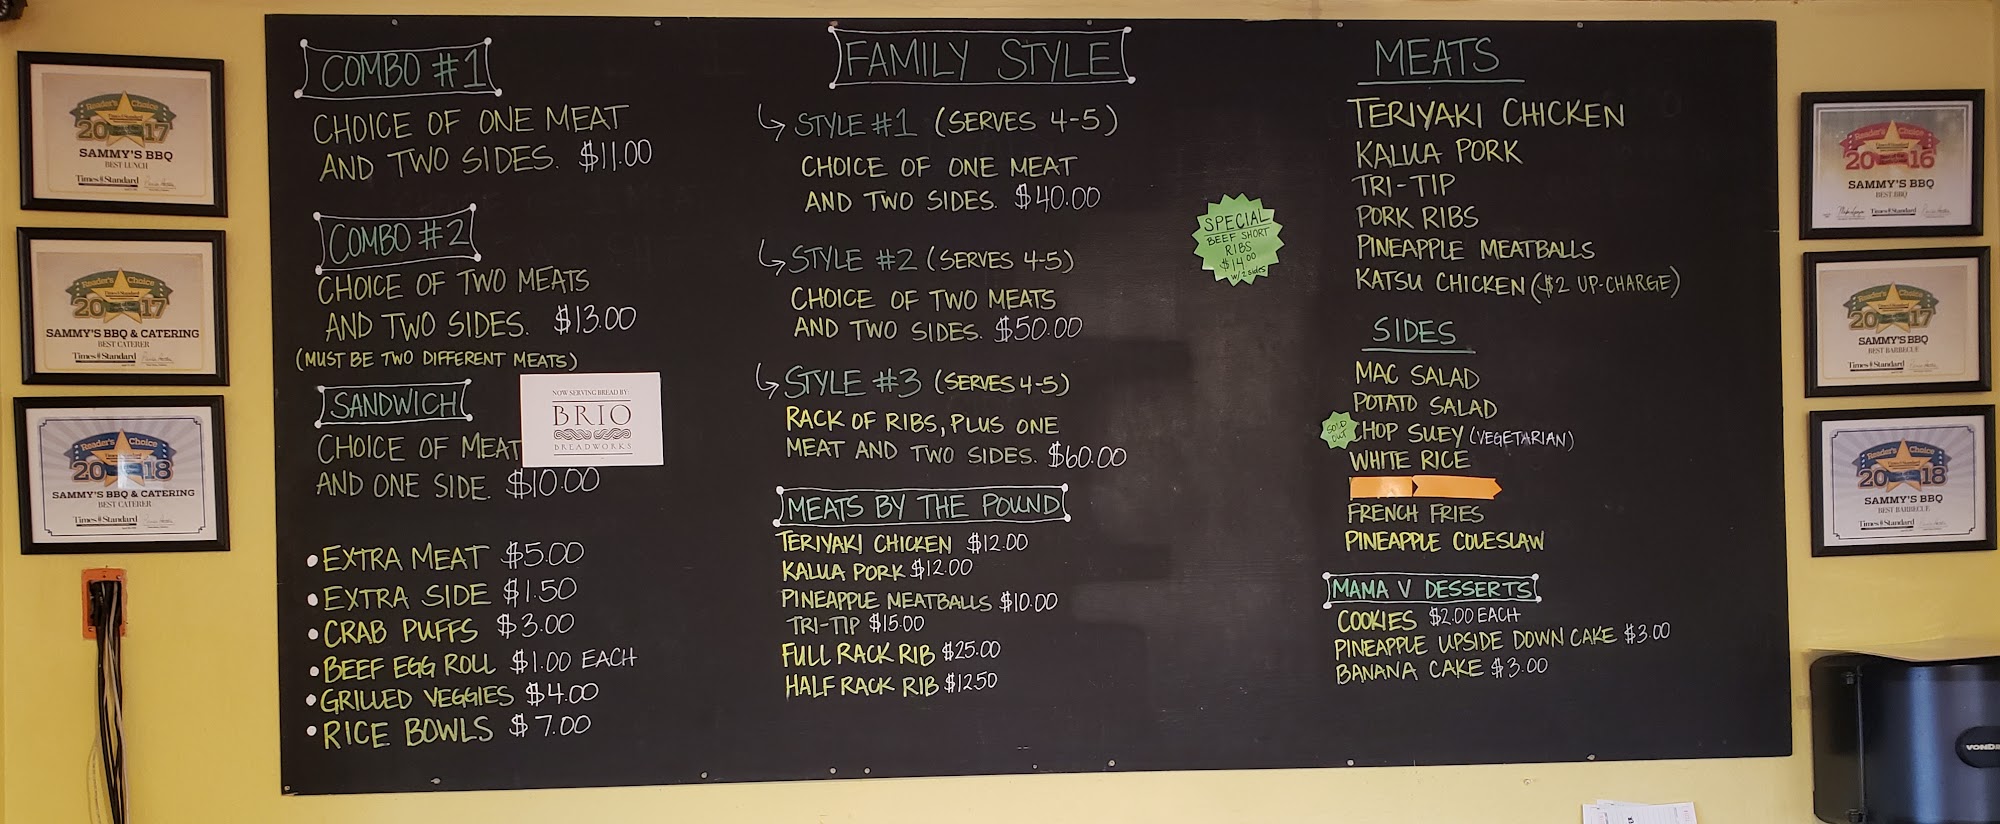 Reader's Choice
2017
SAMMY'S BBQ
BEST LUNCH
Times Standard
Reader's Choice
Times Standard
2017
SAMMY'S BBQ & CATERING
BEST CATERER
Times Standard
Reader's Choice
Times Standard
2018
SAMMY'S BBQ & CATERING
BEST CATERER
Times Standard
COMBO #1
CHOICE OF ONE MEAT
AND TWO SIDES. $11.00
COMBO #2
CHOICE OF TWO MEATS
AND TWO SIDES. $13.00
(MUST BE TWO DIFFERENT MEATS)
SANDWICH
CHOICE OF MEAT
AND ONE SIDE. $10.00
NOW SERVING BREAD BY:
BRIO
BREADWORKS
• EXTRA MEAT $5.00
• EXTRA SIDE $1.50
• CRAB PUFFS $3.00
• BEEF EGG ROLL $1.00 EACH
• GRILLED VEGGIES $4.00
• RICE BOWLS $7.00
FAMILY STYLE
STYLE #1 (SERVES 4-5)
CHOICE OF ONE MEAT
AND TWO SIDES. $40.00
STYLE #2 (SERVES 4-5)
CHOICE OF TWO MEATS
AND TWO SIDES. $50.00
STYLE #3 (SERVES 4-5)
RACK OF RIBS, PLUS ONE
MEAT AND TWO SIDES. $60.00
MEATS BY THE POUND
TERIYAKI CHICKEN $12.00
KALUA PORK $12.00
PINEAPPLE MEATBALLS $10.00
TRI-TIP $15.00
FULL RACK RIB $25.00
HALF RACK RIB $12.50
SPECIAL
BEEF SHORT
RIBS
$14.00
w/2 sides
MEATS
TERIYAKI CHICKEN
KALUA PORK
TRI-TIP
PORK RIBS
PINEAPPLE MEATBALLS
KATSU CHICKEN ($2 UP-CHARGE)
SIDES
MAC SALAD
POTATO SALAD
SOLD
OUT
CHOP SUEY (VEGETARIAN)
WHITE RICE
FRENCH FRIES
PINEAPPLE COLESLAW
MAMA V DESSERTS
COOKIES $2.00 EACH
PINEAPPLE UPSIDE DOWN CAKE $3.00
BANANA CAKE $3.00
Reader's Choice
2016
SAMMY'S BBQ
BEST BBQ
Times Standard
Reader's Choice
2017
SAMMY'S BBQ
BEST BARBECUE
Times Standard
Reader's Choice
2018
SAMMY'S BBQ
BEST BARBECUE
Times Standard